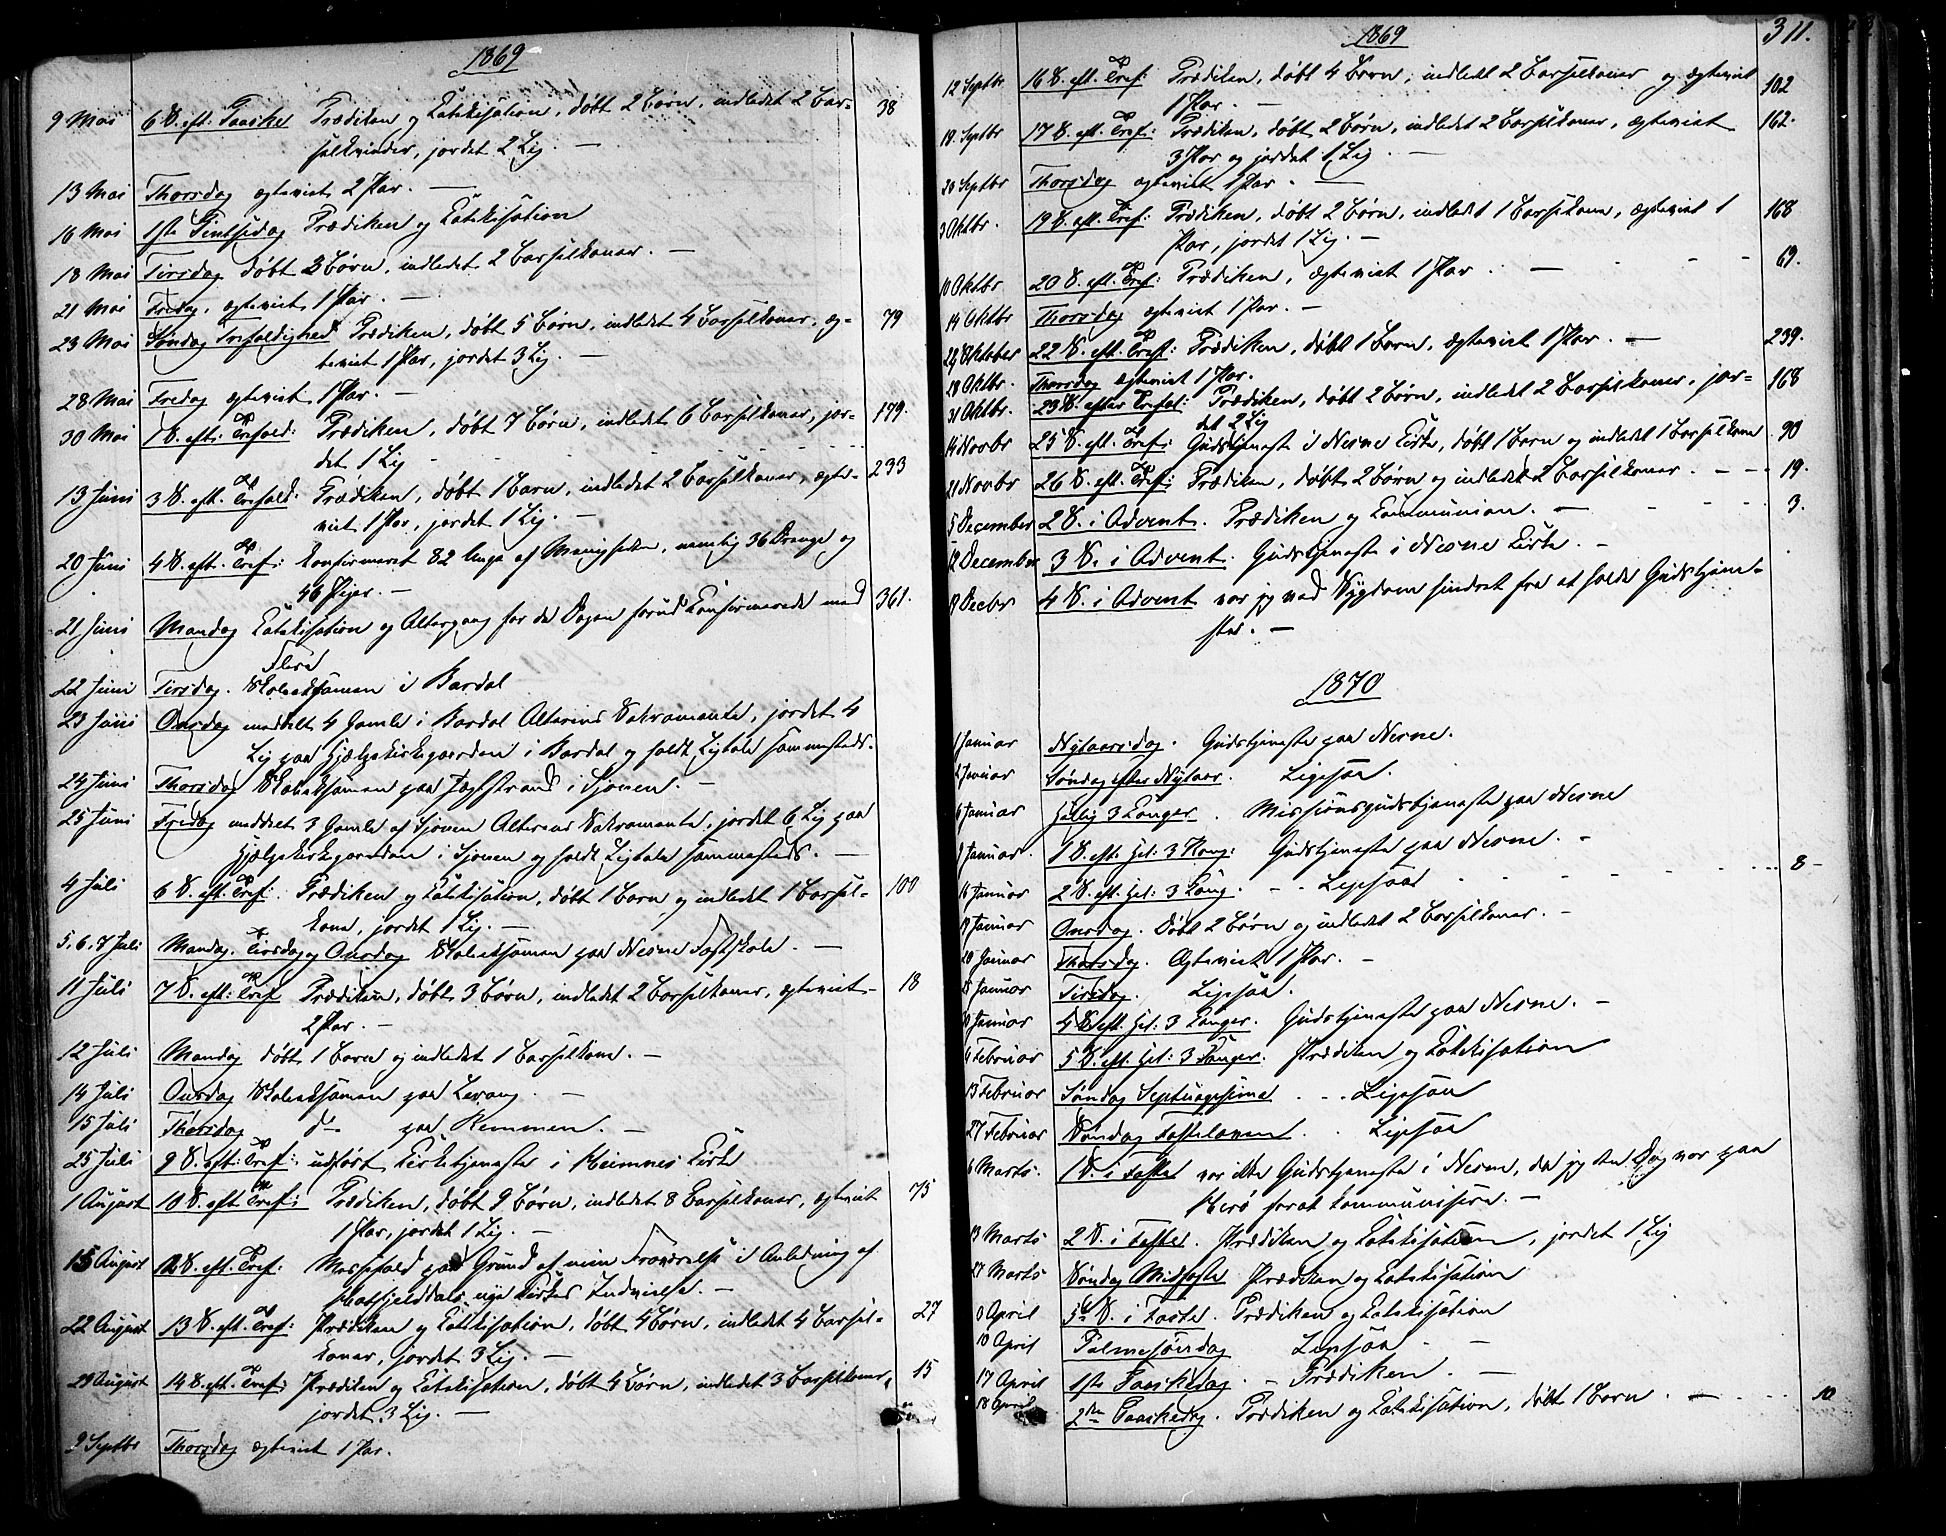 1869
9 Mai 6 S. eft. Paaske Prædiken og Katekisation, døbt 2 Børn, indledet 2 Bar- 38
selkvinder, jordet 2 Lig. —
13 Mai Thorsdag ægteviet 2 Par. —
16 Mai 1ste Pintsedag Prædiken og Katekisation
18 Mai Tirsdag døbt 3 Børn, indledet 2 Barselkoner. —
21 Mai Fredag, ægteviet 1 Par. —
23 Mai Søndag Trefoldighed Prædiken, døbt 5 Børn, indledet 4 Barselkoner, æg- 79
teviet 1 Par, jordet 3 Lig. —
28 Mai Fredag ægteviet 1 Par. —
30 Mai 1 S. eft: Trefold: Prædiken, døbt 7 Børn, indledet 6 Barselkoner, jor- 179.
det 1 Lig
13 Juni 3 S. eft. Trefold: Prædiken, døbt 1 Barn, indledet 2 Barselkoner, ægte- 233
viet 1 Par, jordet 1 Lig. —
20 Juni 4 S. eft. Tref: Konfirmeret 82 Unge af Menigheden, nemlig 36 Drenge og
46 Piger. —
21 Juni Mandag Katekisation og Altergang for de Dagen forud Konfirmerede med 361.
Flere
22 Juni Tirsdag. Skoleeksamen i Bardal
23 Juni Onsdag meddelt 4 Gamle i Bardal Alterens Sakramente, jordet 4
Lig paa Hjælpekirkegaarden i Bardal og holdt Ligtale sammesteds.
24 Juni Thorsdag Skoleeksamen paa Fagstrand i Sjonen. —
25 Juni Fredag meddelt 3 Gamle af Sjonen Alterens Sakramente, jordet 6 Lig paa
Hjælpekirkegaarden i Sjonen og holdt Ligtale sammesteds. —
4 Juli 6 S. eft. Tref: Prædiken og Katekisation, døbt 1 Barn og indledet 1 Barsel- 100
kone, jordet 1 Lig. —
5. 6. 7 Juli Mandag, Tirsdag og Onsdag Skoleeksamen paa Nesne Fastskole. —
11 Juli 7 S. eft: Tref Prædiken, døbt 3 Børn, indledet 2 Barselkoner, ægteviet 18
2 Par. —
12 Juli Mandag døbt 1 Barn og indledet 1 Barselkone. —
14 Juli Onsdag Skoleeksamen paa Levang. —
15 Juli Thorsdag do paa Remmen. —
25 Juli 9 S. eft: Tref: udført Kirketjeneste i Hemnes Kirke
1 August 10 S. eft Tref: Prædiken, døbt 9 Børn, indledet 8 Barselkoner, ægteviet 75
1 Par, jordet 1 Lig. —
15 August 12 S. eft. Tref: Messefald paa Grund af min Fraværelse i Anledning af
Hatfjelddals nye Kirkes Indvielse. —
22 August 13 S. eft. Tref: Prædiken og Katekisation, døbt 4 Børn, indledet 4 Barsel- 27
koner, jordet 3 Lig. —
29 August 14 S. eft. Tref: Prædiken og Katekisation, døbt 4 Børn, indledet 3 Barselkoner, 15
jordet 3 Lig. —
9 Septbr Thorsdag ægteviet 1 Par.
1869 311.
12 Septbr 16 S. eft. Tref: Prædiken, døbt 4 Børn, indledet 2 Barselkoner og ægteviet 102
1 Par. —
19. Septbr 17 S. eft. Tref: Prædiken, døbt 2 Børn, indledet 2 Barselkoner, ægteviet 162.
3 Par og jordet 1 Lig. —
Septbr Thorsdag ægteviet 1 Par. —
3 Oktbr. 19 S. eft. Tref: Prædiken, døbt 2 Børn, indledet 1 Barselkone, ægteviet 1 168
Par, jordet 1 Lig. —
10 Oktbr 20 S. eft. Tref: Prædiken, ægteviet 1 Par. — 69.
14 Oktbr Thorsdag ægteviet 1 Par. —
24 Oktober 22 S. eft. Tref: Prædiken, døbt 1 Barn, ægteviet 1 Par. — 239.
28 Oktbr. Thorsdag ægteviet 1 Par.
31 Oktbr. 23 S. efter Trefol: Prædiken, døbt 2 Børn, indledet 2 Barselkoner, jor- 168
det 2 Lig
14 Novbr 25 S. eft. Tref: Gudstjeneste i Nesne Kirke, døbt 1 Barn og indledet 1 Barselkone 90
21 Novbr 26 S. eft. Tref: Prædiken, døbt 2 Børn og indledet 2 Barselkoner. 19.
5 December 2 S. i Advent. Prædiken og Kommunion. — 3.
12 December 3 S. i Advent. Gudstjeneste i Nesne Kirke. —
19 Decbr 4 S. i Advent var jeg ved Sygdom hindret fra at holde Gudstjene-
ste. —
1870
1 Januar Nytaarsdag. Gudstjeneste paa Nesne.
2 Januar Søndag efter Nytaar. Ligesaa.
6 Januar Hellig 3 Konger. Missionsgudstjeneste paa Nesne
9 Januar. 1 S. eft. Hel: 3 Kong: Gudstjeneste paa Nesne. —
16 Januar 2 S. eft. Hel: 3 Kong. Ligesaa 8 —
19 Januar Onsdag. Døbt 2 Børn og indledet 2 Barselkoner. —
20 Januar Thorsdag. Ægteviet 1 Par. —
25 Januar Tirsdag. Ligesaa.
30 Januar 4 S. eft. Hel: 3 Konger. Gudstjeneste paa Nesne. —
6 Februar 5 S. eft. Hel: 3 Konger. Prædiken og Katekisation
13 Februar Søndag Septuagesima Ligesaa
27 Februar Søndag Fastelavn. Ligesaa
6 Marts. 1 S. i Faste var ikke Gudstjeneste i Nesne, da jeg den Dag var paa
Herø forat kommunisere. —
13 Marts 2 S. i Faste. Prædiken og Katekisation, jordet 1 Lig
27 Marts Søndag Midfaste Prædiken og Katekisation
April 5te S. i Faste. Prædiken og Katekisation
10 April Palmesøndag Ligesaa —
17 April 1ste Paaskedag. — Prædiken. —
18 April 2den Paaskedag. Prædiken og Katekisation, døbt 1 Barn. — 10